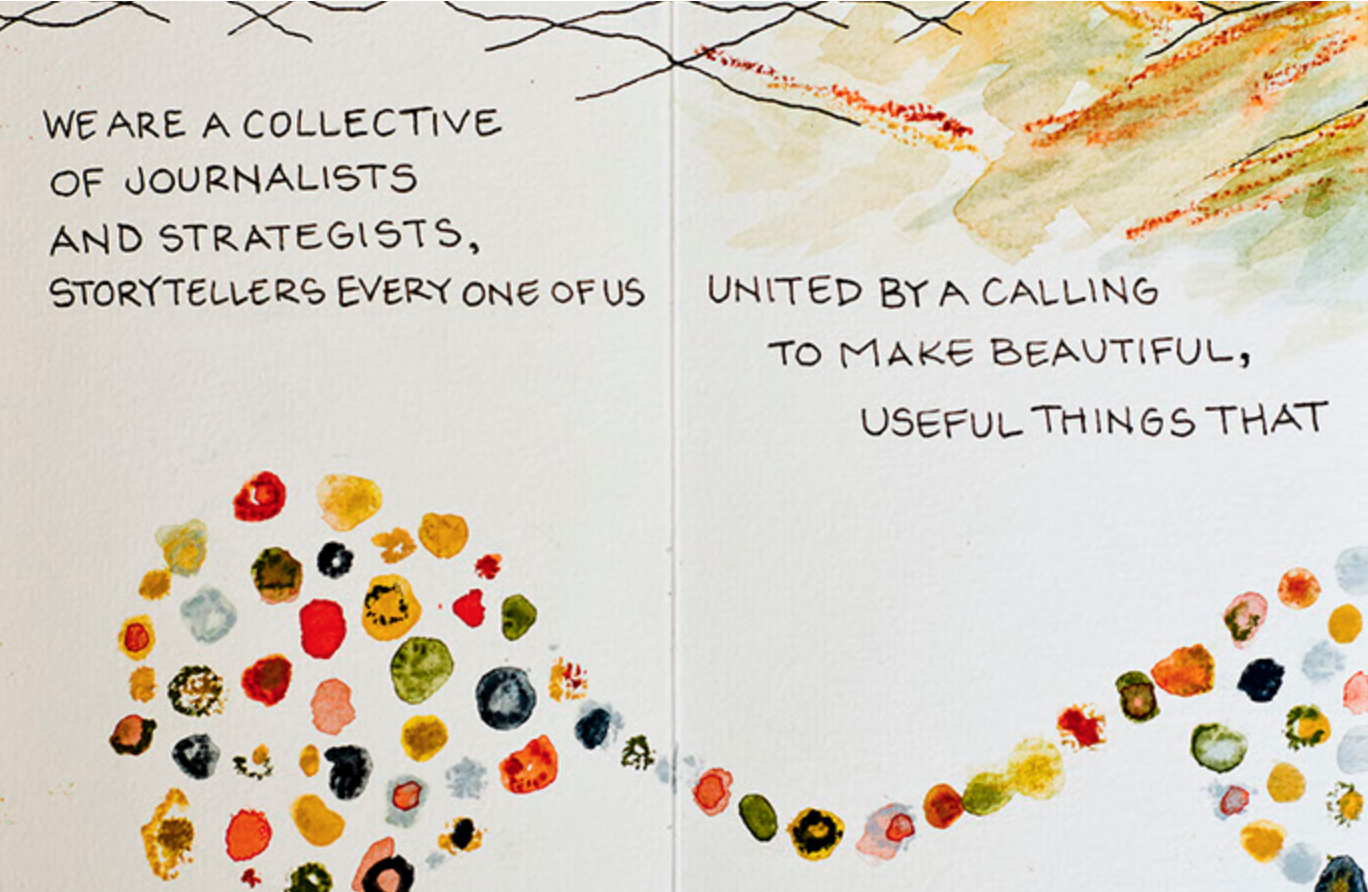 WE ARE A COLLECTIVE
OF JOURNALISTS
AND STRATEGISTS,
STORYTELLERS EVERY ONE OF US
UNITED BY A CALLING
TO MAKE BEAUTIFUL,
USEFUL THINGS THAT